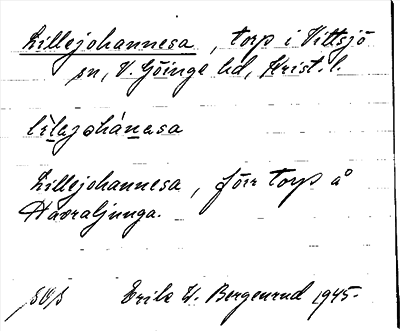 Lillejohannesa, torp i Vittsjö
sn, V. Göinge hd, Krist. l.
lìlejohánesa
Lillejohannesa, förr torp å
Haraljunga.
Erik W. Bergenrud 1945.